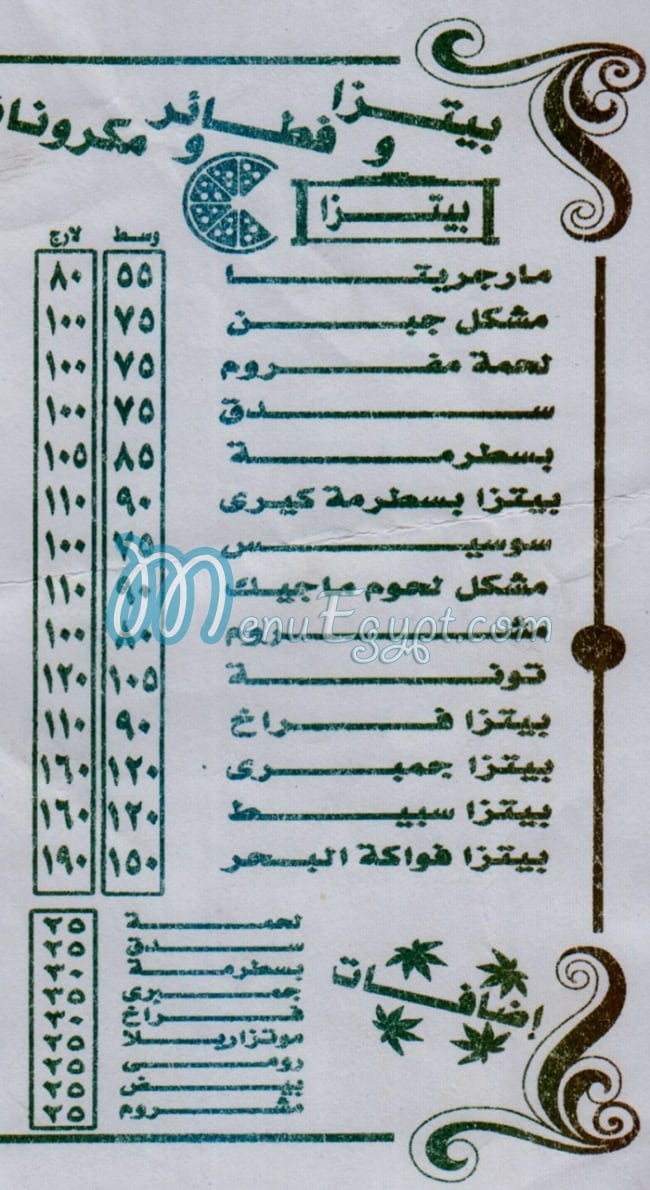 بيتزا و فطائر و مكرونات
بيتزا
وسط لارج
مارجريتا ٥٥ ٨٠
مشكل جبن ٧٥ ١٠٠
لحمة مفروم ٧٥ ١٠٠
سدق ٧٥ ١٠٠
بسطرمة ٨٥ ١٠٥
بيتزا بسطرمة كيرى ٩٠ ١١٠
سوسيس ٧٥ ١٠٠
مشكل لحوم ماجيك ٩٠ ١١٠
مشروم ٨٠ ١٠٠
تونة ١٠٥ ١٢٠
بيتزا فراخ ٩٠ ١١٠
بيتزا جمبرى ١٢٠ ١٦٠
بيتزا سبيط ١٢٠ ١٦٠
بيتزا فواكة البحر ١٥٠ ١٩٠
MenuEgypt.com
إضافات
لحمة ٢٥
سدق ٢٥
بسطرمة ٣٠
جمبرى ٣٥
فراخ ٣٠
موتزاريلا ٢٥
رومى ٢٥
بيض ٢٥
مشروم ٢٥